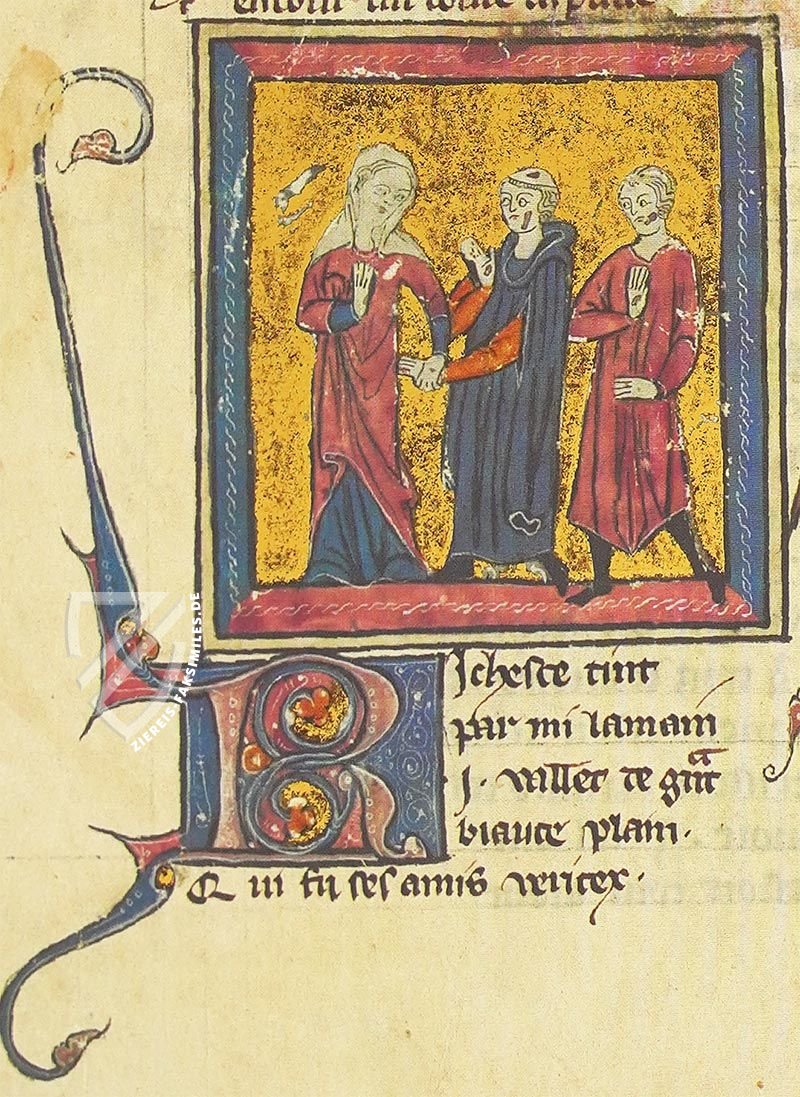 Richesce tint
par mi la main
.I. vallet de gnt
biaute plain.
Q ui fu ses amis veritex.
ZIEREIS FAKSIMILES.DE